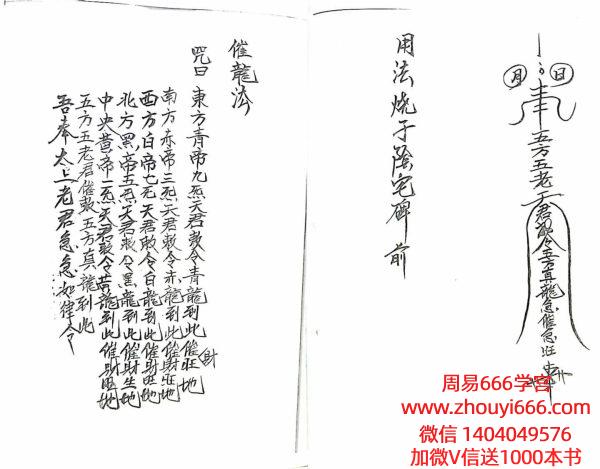 月 日
奉
五方五老天君敕令五方真龍急催急旺
用法燒于陰宅碑前
催龍法
咒曰 東方青帝九炁天君敕令青龍到此催財旺地
南方赤帝三炁天君敕令赤龍到此催財旺地
西方白帝七炁天君敕令白龍到此催財旺地
北方黑帝五炁天君敕令黑龍到此催財生地
中央黄帝一炁天君敕令黄龍到此催財旺地
五方五老君催敕五方真龍到此
吾奉太上老君急急如律令
周易666学宫
www.zhouyi666.com
微信 1404049576
加微V信送1000本书